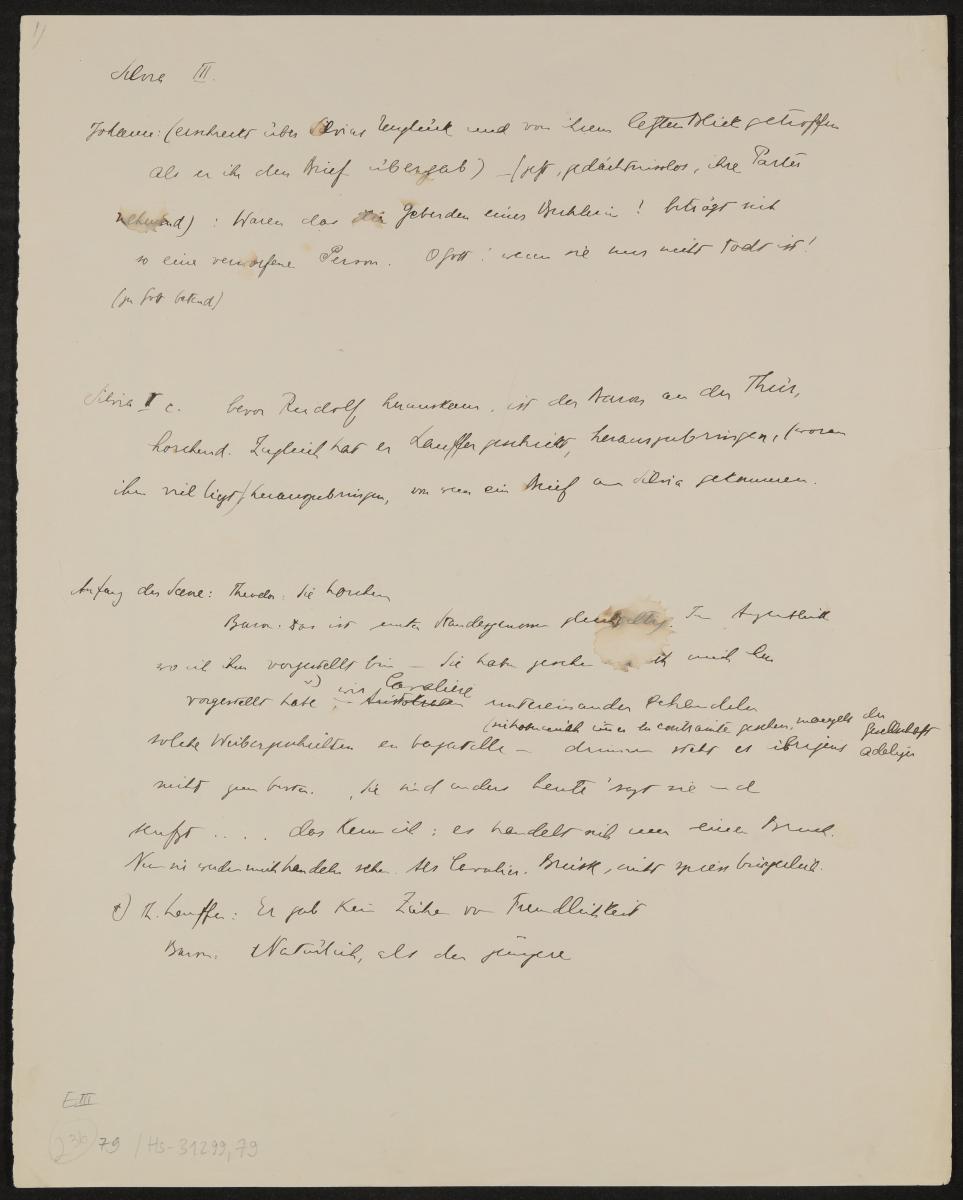 1)
Silvia III.
Johann: (erschreckt über Silvias Unglück und von ihrem letzten Blick getroffen
als er ihr den Brief übergab) – (jetzt, gedächtnisslos, ihre Partei
nehmend) : Waren das die Geberden eines Buhlerin! beträgt sich
so eine verworfene Person. O Gott! wenn sie nur nicht todt ist!
(zu Gott betend)
Silvia I c. bevor Rudolf herauskam, ist der Baron an der Thür,
horchend. Zugleich hat er Lauffer geschickt, herauszubringen, (woran
ihm viel liegt) herauszubringen, von wem ein Brief an Silvia gekommen.
Anfang der Scene: Theodor: Sie horchen
Baron: Das ist unter Standesgenossen gleichgiltig. Im Augenblick
wo ich ihm vorgestellt bin – Sie haben gesehen ich mich ihm
vorgestellt habe +) – wir Cavaliere Aristokraten untereinander behandeln
solche Weibergeschichten en bagatelle – drinnen steht es übrigens
(sich immer en contrainte gesehen, mangels der Gesellschaft adeliger
nicht zum besten. Sie sind anders heute sagt sie und
seufzt . . . . das kenn ich: es handelt sich um einen Bruch.
Nun sie werden mich handeln sehen. Als Cavalier. Brüsk, nicht spiessbürgerlich.
+) Th. Lauffer: Er gab kein Zeichen von Freundlichkeit
Baron: Natürlich, als der jüngere
E III
23b 79 / Hs-31299,79